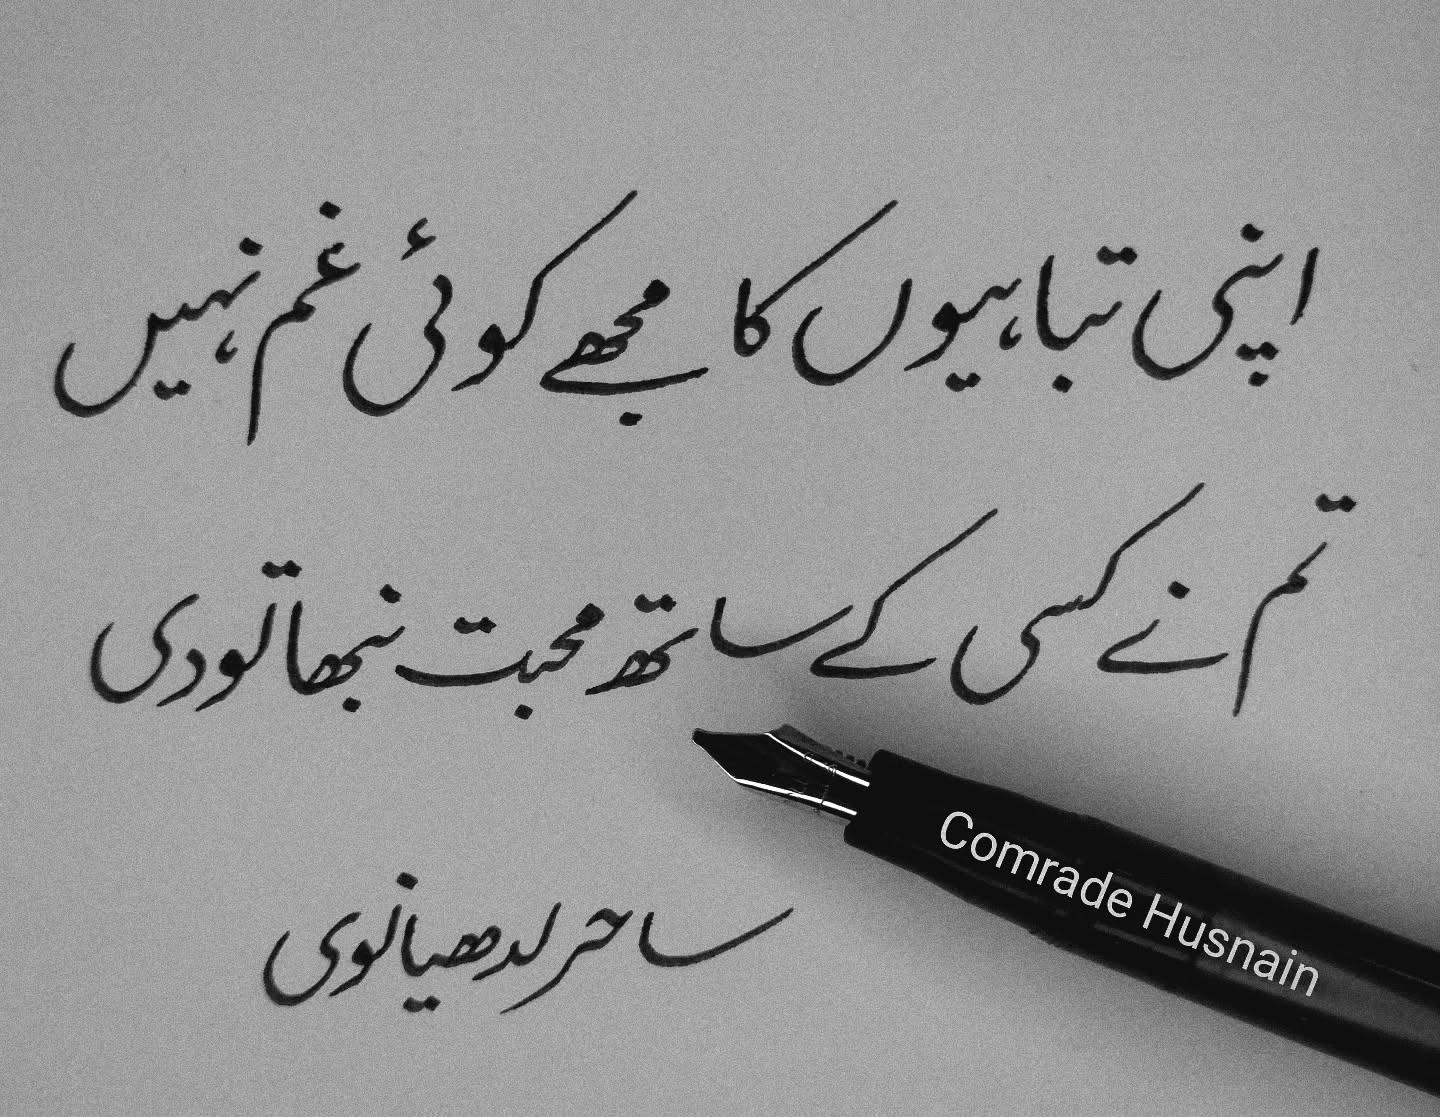 اپنی تباہیوں کا مجھے کوئی غم نہیں
تم نے کسی کے ساتھ محبت نبھا تو دی
ساحر لدھیانوی
Comrade Husnain